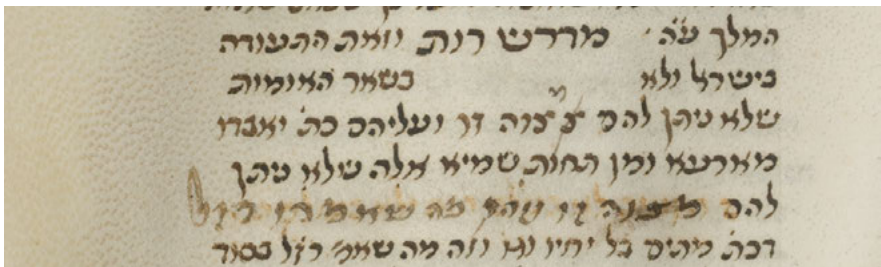 המלך ע״ה מדרש רות וזאת התעודה
בישראל ולא בשאר האומות
שלא ניתן להם מצוה זו ועליהם כת׳ יאבדו
מארעא ומן תחות שמיא אלה שלא ניתן
להם מצוה זו מה שאמרו
דכת׳ מתים בל יחיו וגו׳ וזה מה שאמ׳ רז״ל בסוד